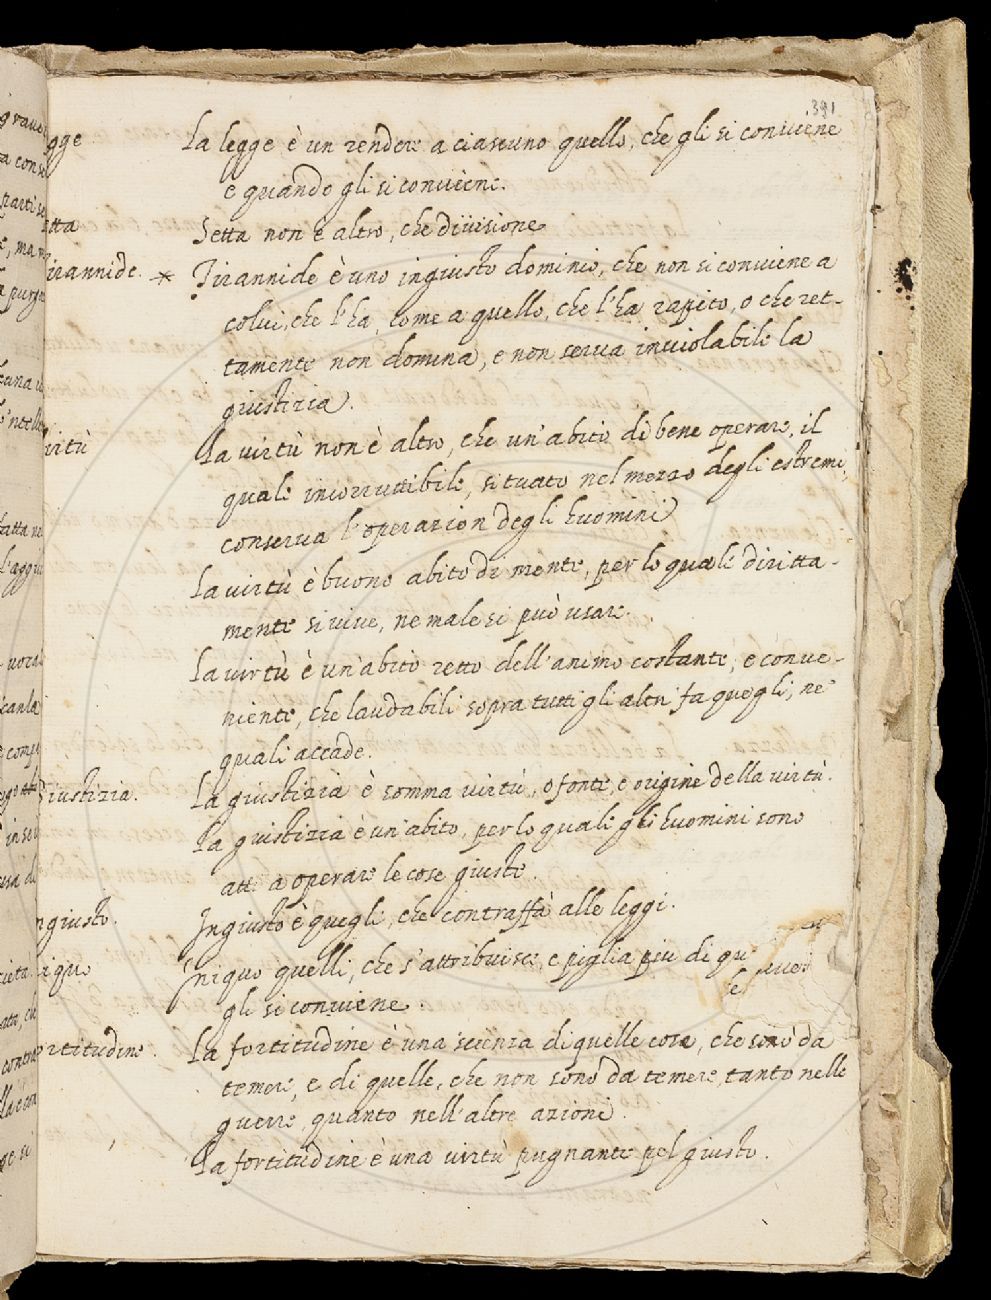 391
gge La legge è un rendere a ciascuno quello, che gli si conviene
e quando gli si conviene.
tta Setta non è altro, che divisione
irannide. * Tirannide è uno ingiusto dominio, che non si conviene a
colui, che l'ha, come a quello, che l'ha rapito, o che ret-
tamente non domina, e non serva inviolabile la
giustizia.
irtù La virtù non è altro, che un'abito di bene operare, il
quale incorruttibile, situato nel mezzo degli estremi,
conserva l'operazion degli huomini
La virtù è buono abito di mente, per lo quale diritta-
mente si vive, ne male si può usare.
La virtù è un'abito retto dell'animo costante, e conve-
niente, che laudabili sopra tutti gli altri fa quegli, ne
quali accade.
Giustizia. La giustizia è somma virtù, o fonte, e origine della virtù.
La giustizia è un'abito, per lo quale gli huomini sono
atti a operare le cose giuste.
ngiusto. Ingiusto è quegli, che contraffà alle leggi.
iquo Iniquo quelli, che s'attribuisce, e piglia piu di qu
gli si conviene.
ortitudine. La fortitudine è una scienza di quelle cose, che sono da
temere, e di quelle, che non sono da temere, tanto nelle
guerre, quanto nell'altre azioni.
La fortitudine è una virtù pugnante pel giusto.